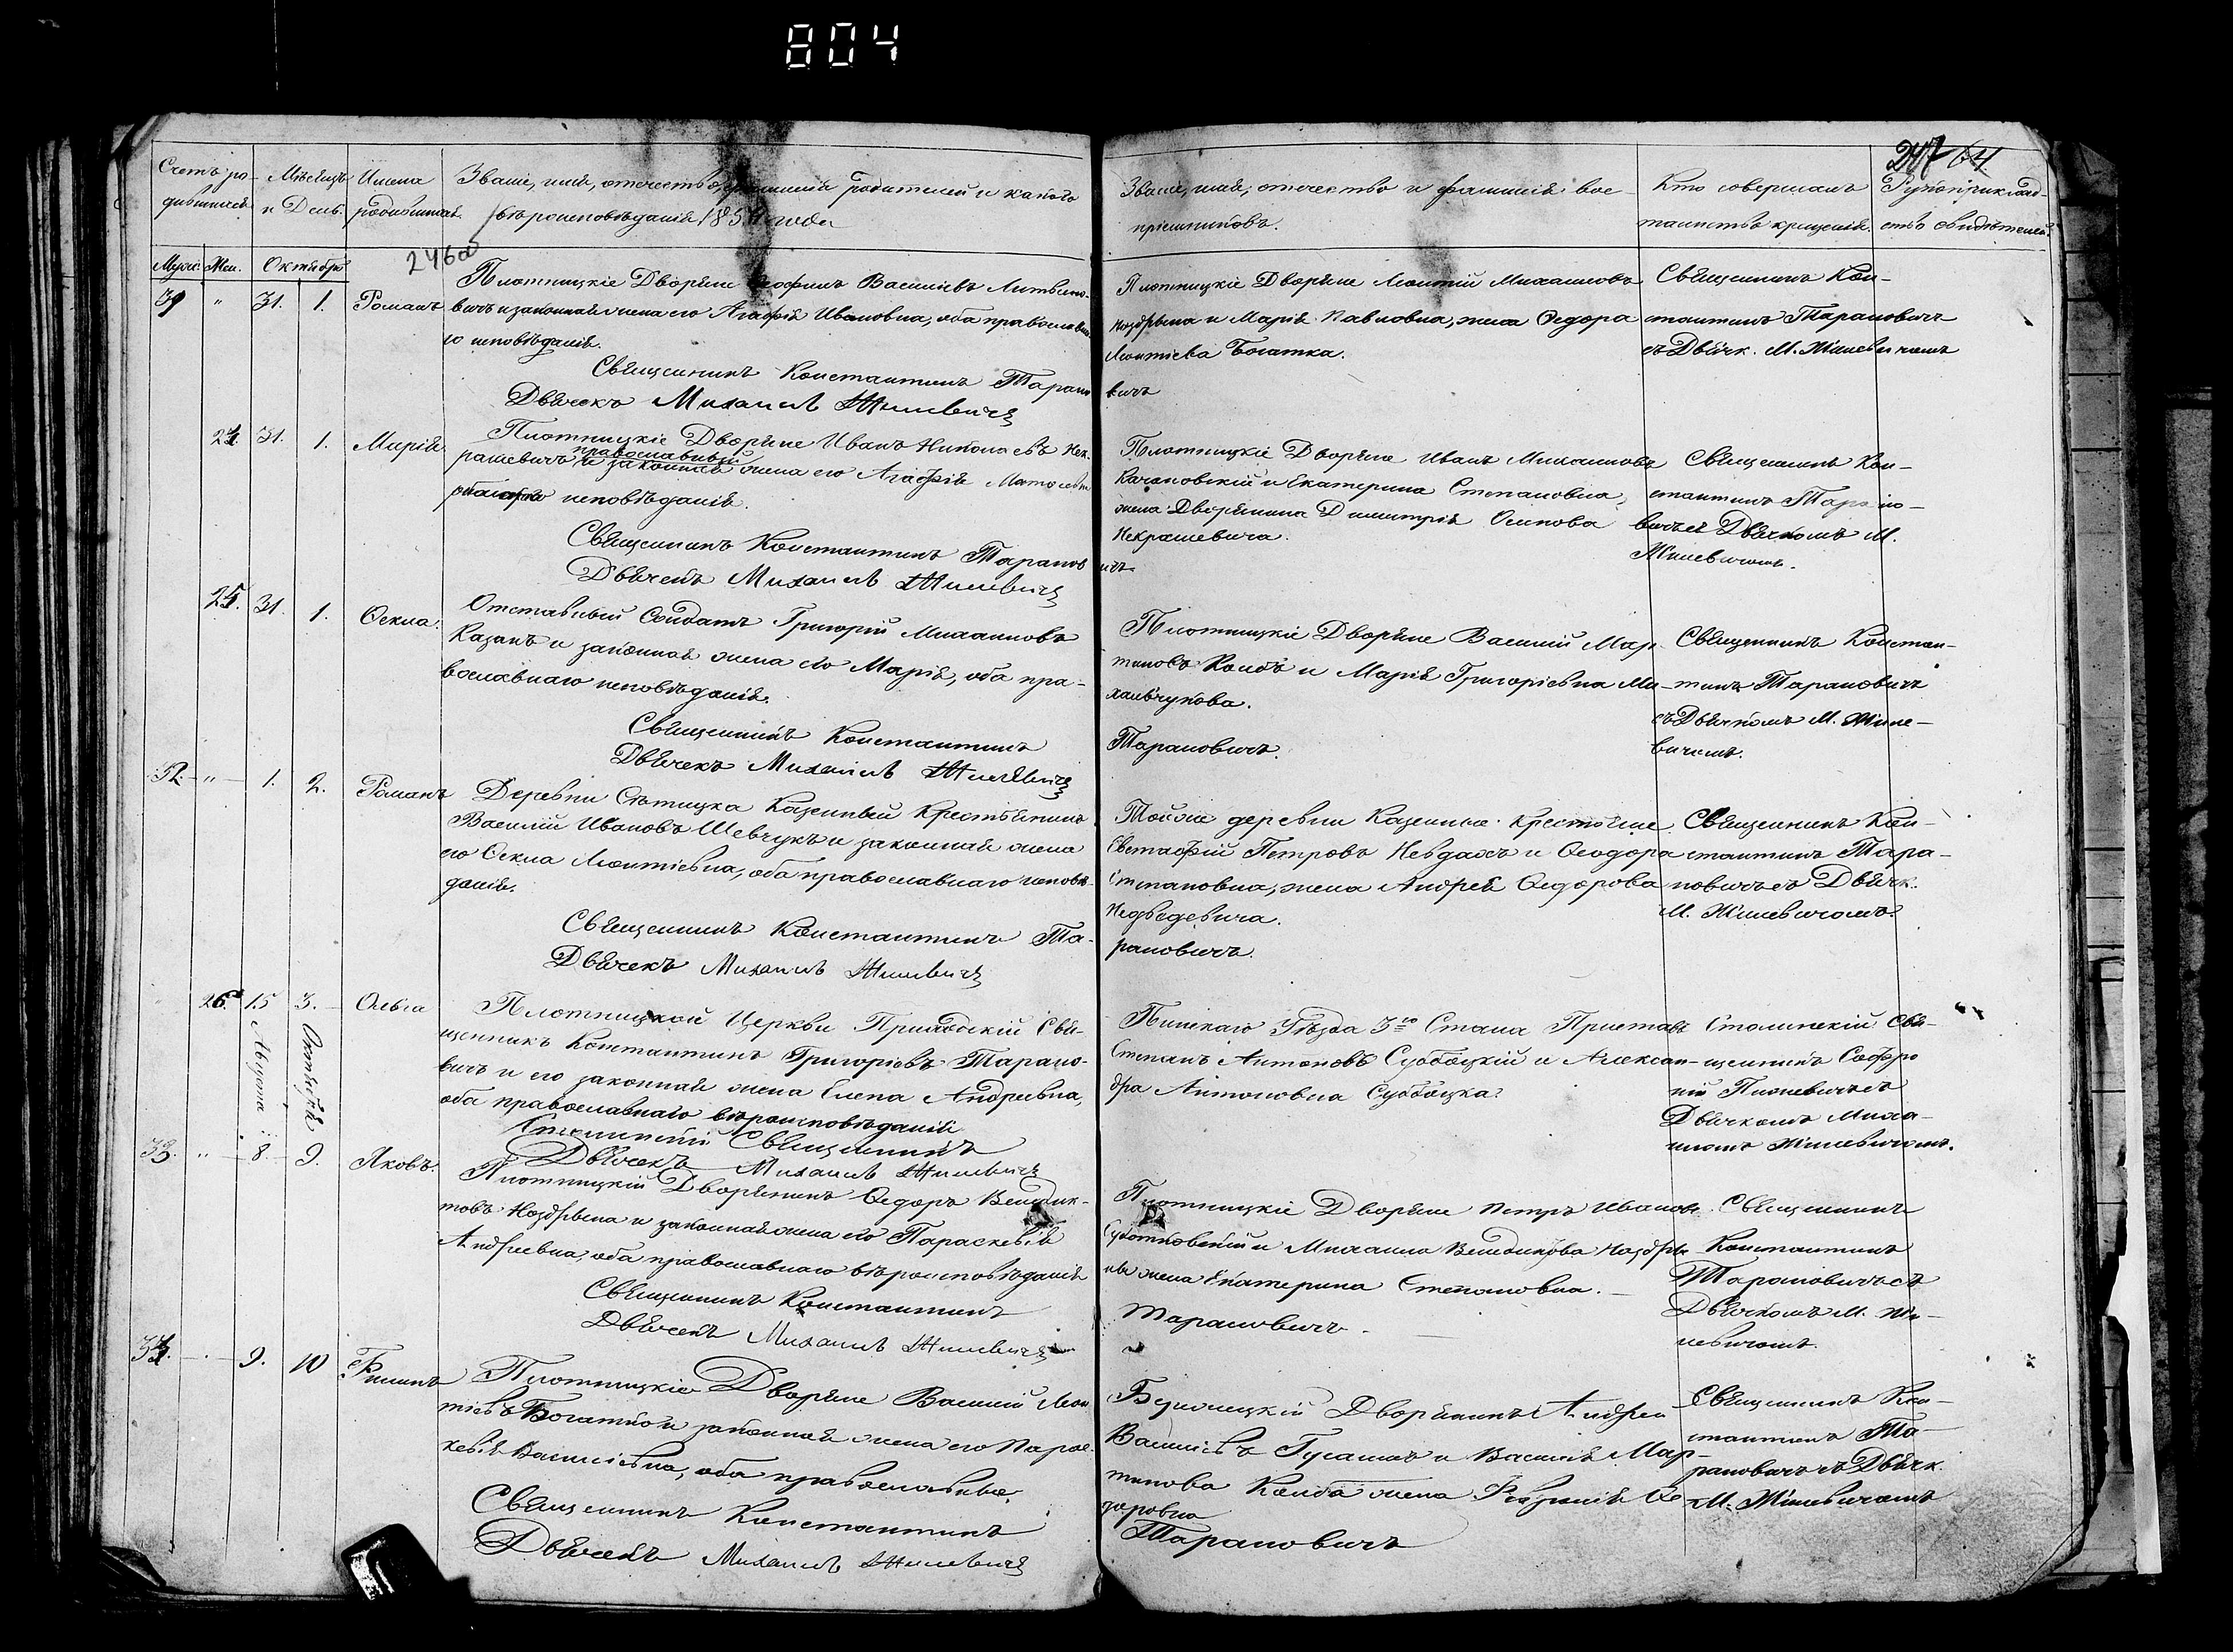 804
247 64
Счетъ ро-
дившихся
Мѣсяцъ
и День.
Имена
родившихся.
Званіе, имя, отчество, фамилія родителей и какого
вѣроисповѣданія 185 года
Званіе, имя, отчество и фамилія вос-
пріемниковъ.
Кто совершалъ
таинство крещенія.
Рукоприклад-
ство свидѣтелей.
246об
Муж. Жен. Октябрь
31. 1. Романъ
Плотницкіе Дворяне Теофилъ Васильевъ Литвино-
вичъ и законная жена его Агафія Ивановна, оба православна-
го исповѣданія.
Священникъ Константинъ Таранов
Дьячекъ Михаилъ Жилевичъ
Плотницкіе Дворяне Леонтій Михаиловъ
Ноздрына и Марія Павловна, жена Ѳедора
Леонтіева Богатка.
вичъ
Священникъ Кон-
стантинъ Тарановичъ
съ Дьячк. М. Жилевичомъ
24. 31. 1. Марія
Плотницкіе Дворяне Иванъ Николаевъ Нек
рашевичъ православный и законная жена его Агафія
исповѣданія.
Священникъ Константинъ Таранов
Дьячекъ Михаилъ Жилевичъ
Плотницкіе Дворяне Иванъ Михаиловъ
Качановскій и Екатерина Степановна,
жена Дворянина Димитрія Осипова
Некрашевича.
ичъ
Священникъ Кон-
стантинъ Тарано-
вичъ съ Дьячкомъ М.
Жилевичомъ.
25. 31. 1. Ѳекла.
Отставный Солдатъ Григорій Михаиловъ
Казакъ и законная жена его Марія, оба пра-
вославнаго исповѣданія.
Священникъ Константинъ
Дьячекъ Михаилъ Жилевичъ
Плотницкіе Дворяне Василій Мар-
тиновъ Колбъ и Марія Григоріевна Ми-
хальчукова.
Тарановичъ.
Священникъ Констан-
тинъ Тарановичъ
съ Дьячкомъ М. Жиле-
вичомъ.
32. — " — 1. 2. Романъ
Деревни Сѣтицка Казенный Крестьянинъ
Василій Ивановъ Шевчукъ и законная жена
его Ѳекла Леонтіевна, оба православнаго исповѣ-
данія.
Священникъ Константинъ Та-
Дьячекъ Михаилъ Жилевичъ
Тойже деревни Казенные Крестьяне
Евстафій Петровъ Невдахъ и Ѳеодора
Степановна, жена Андрея Ѳедорова
Недведевича.
рановичъ.
Священникъ Кон-
стантинъ Тара-
новичъ съ Дьячк.
М. Жилевичомъ.
26. 15 3. Ольга
Августа
Октября
Плотницкой Церкви Приходскій Свя-
щенникъ Константинъ Григорьевъ Тарано-
вичъ и его законная жена Елена Андреевна,
оба православнаго вѣроисповѣданія
Столинскій Священникъ
Дьячекъ Михаилъ Жилевичъ
Пинскаго Уѣзда 3го Стана Приставъ
Степанъ Антоновъ Субоцкій и Алексан-
дра Антоновна Субоцка.
Столинскій Свя-
щенникъ Софро
ній съ
Дьячкомъ Миха-
иломъ Жилевичомъ.
33. " 8. 9. Яковъ.
Плотницкій Дворянинъ Ѳедоръ Венедик-
товъ Ноздрына и законная жена его Параскевія
Андреевна, оба православнаго вѣроисповѣданія
Священникъ Константинъ
Дьячекъ Михаилъ Жилевичъ
Плотницкіе Дворяне Петръ Ивановъ
и Михаила Венедиктова Ноздры-
ны жена Екатерина Степановна.
Тарановичъ.
Священникъ
Константинъ
Тарановичъ съ
Дьячкомъ М. Жи-
левичомъ.
34. 9. 10 Филипъ
Плотницкіе Дворяне Василій Леон
тіевъ Богатко и законная жена его Парас-
кевія Василіевна, оба православные.
Священникъ Константинъ
Дьячекъ Михаилъ Жилевичъ
Дворянинъ Андрей
Васильевъ и Василія Мар-
тинова Колба жена Ѳе-
доровна
Тарановичъ
Священникъ Кон-
стантинъ Та-
рановичъ съ Дьячк.
М. Жилевичомъ